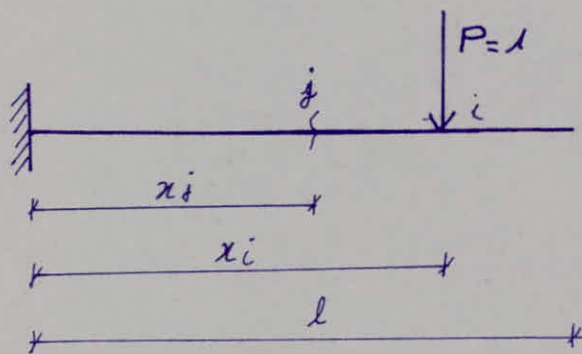 P=1
j
i
xj
xi
l